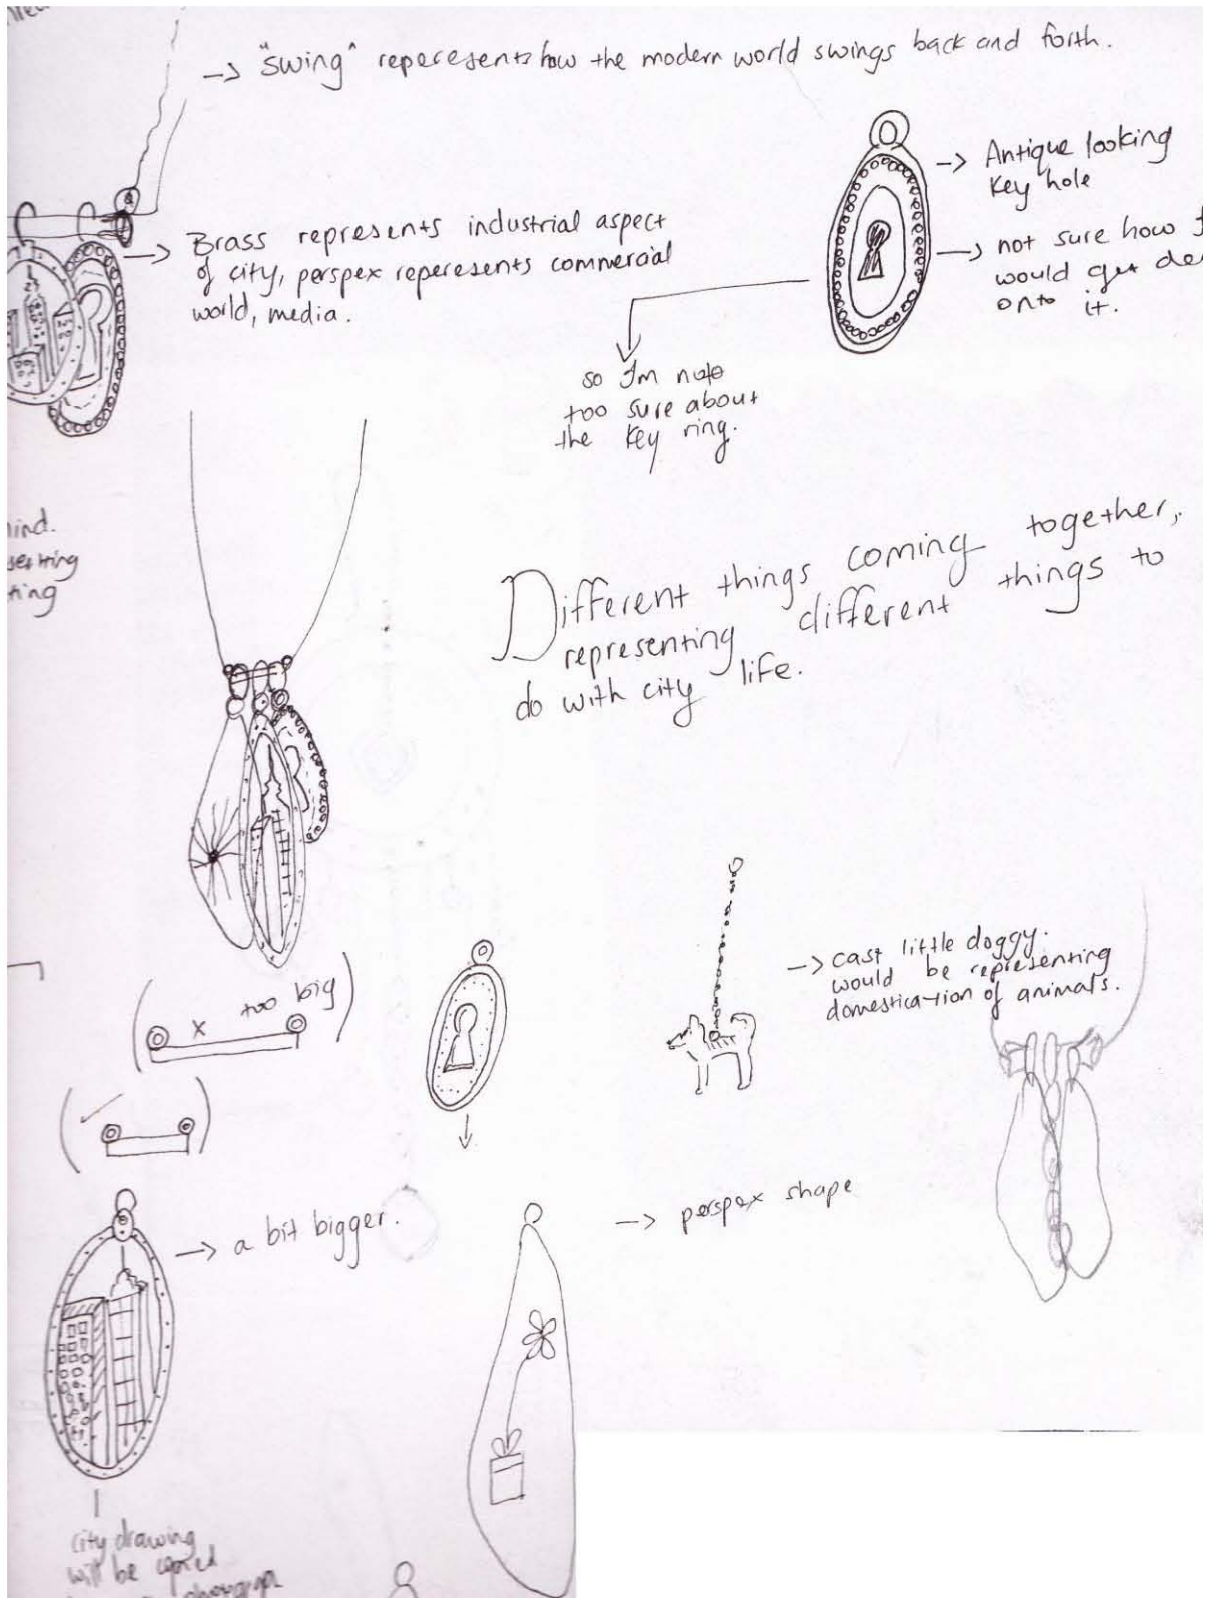 → "swing" repersents how the modern world swings back and forth.
→ Antique looking
key hole
→ not sure how I
would get
onto it.
→ Brass represents industrial aspect
of city, perspex repersents commercial
world, media.
so I'm note
too sure about
the key ring.
Different things coming together,
representing different things to
do with city life.
→ cast little doggy.
would be representing
domestication of animals.
(x too big)
(✓)
→ perspex shape
→ a bit bigger.
city drawing
will be